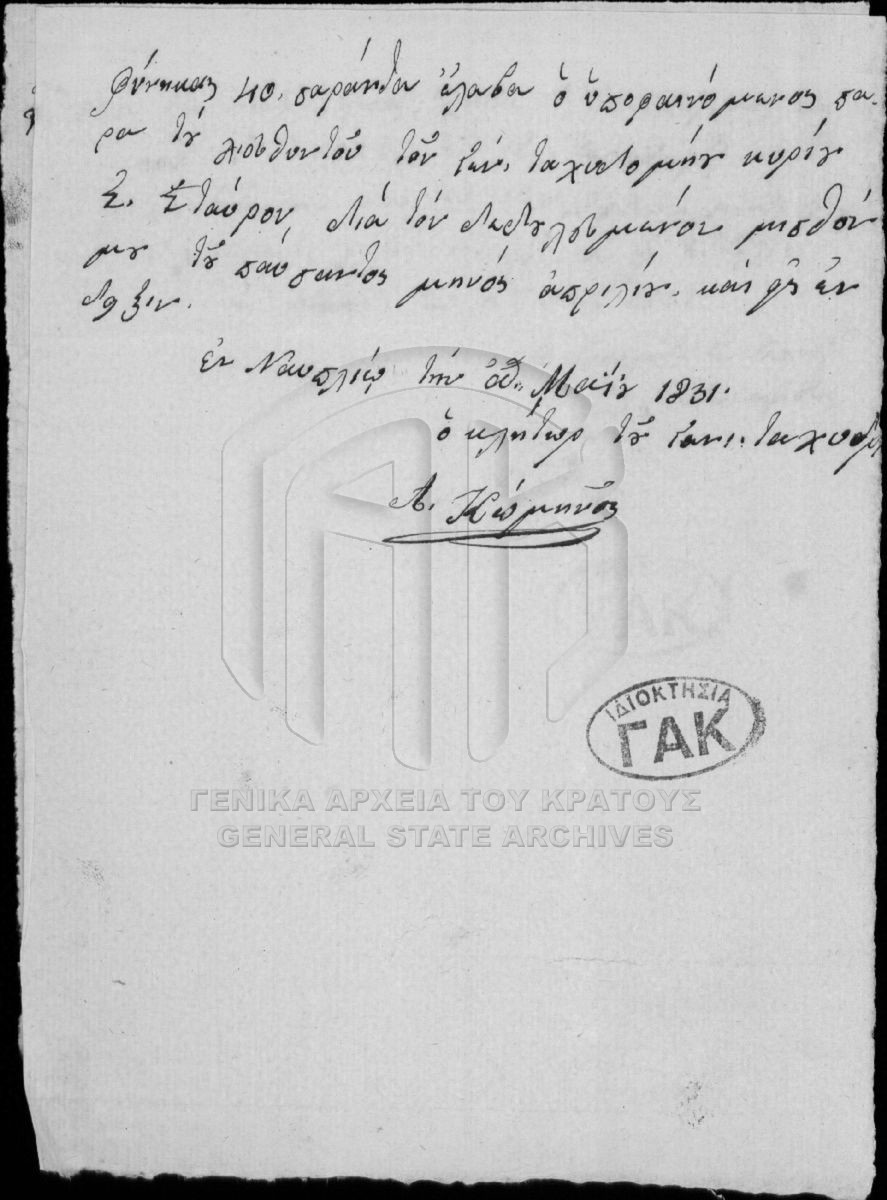 φύνηκας 40. σαράντα ἔλαβα ὁ ὑποφαινόμενος πα-
ρα τοῦ διευθυντοῦ τοῦ Γεν. ταχυδρομίου κυρίου
Σ. Σταύρου, διά τόν μισθόν
μου τοῦ παύσαντος μηνός ἀπριλίου. καί εἰς ἔν
δηξιν.
ἐν Ναυπλίῳ τήν Μαΐου 1831.
ὁ κλητωρ τοῦ Γεν. ταχυδρ
Α. Κομηνός
ΙΔΙΟΚΤΗΣΙΑ
ΓΑΚ
ΓΕΝΙΚΑ ΑΡΧΕΙΑ ΤΟΥ ΚΡΑΤΟΥΣ
GENERAL STATE ARCHIVES